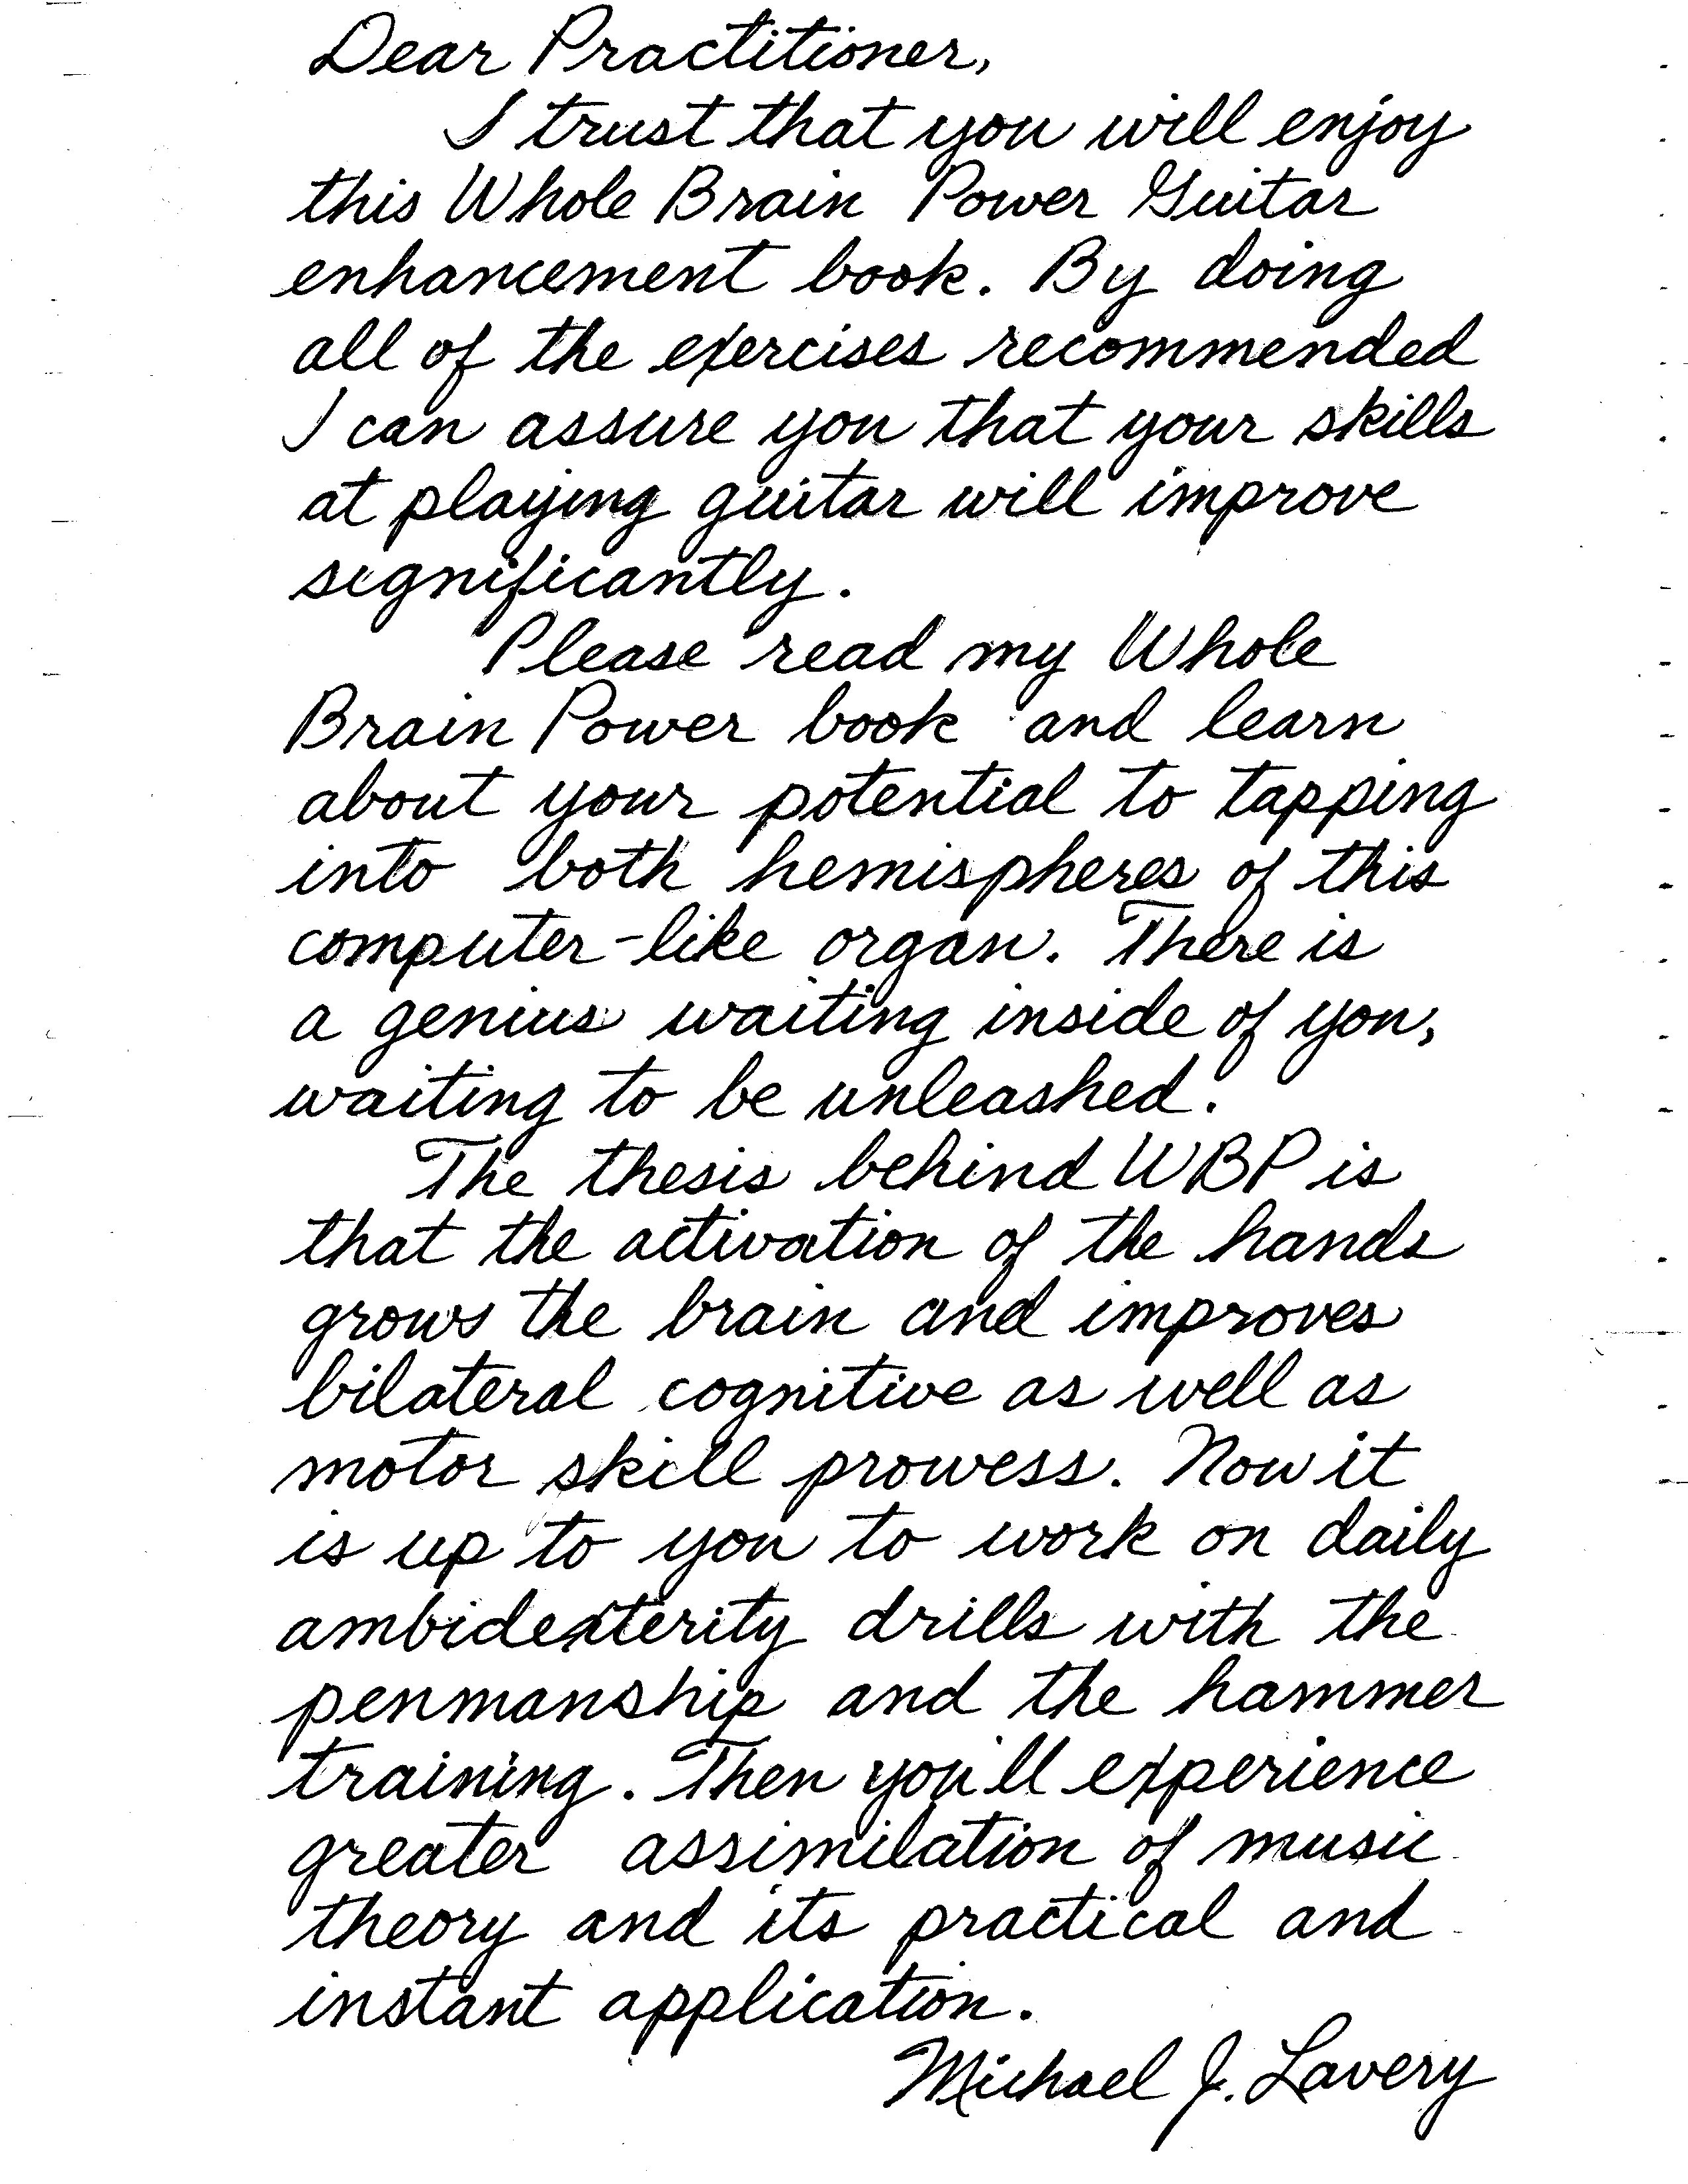 Dear Practitioner,
I trust that you will enjoy
this Whole Brain Power Guitar
enhancement book. By doing
all of the exercises recommended
I can assure you that your skills
at playing guitar will improve
significantly.
Please read my Whole
Brain Power book and learn
about your potential to tapping
into both hemispheres of this
computer-like organ. There is
a genius waiting inside of you,
waiting to be unleashed.
The thesis behind WBP is
that the activation of the hands
grows the brain and improves
bilateral cognitive as well as
motor skill prowess. Now it
is up to you to work on daily
ambidexterity drills with the
penmanship and the hammer
training. Then you'll experience
greater assimilation of music
theory and its practical and
instant application.
Michael J. Lavery